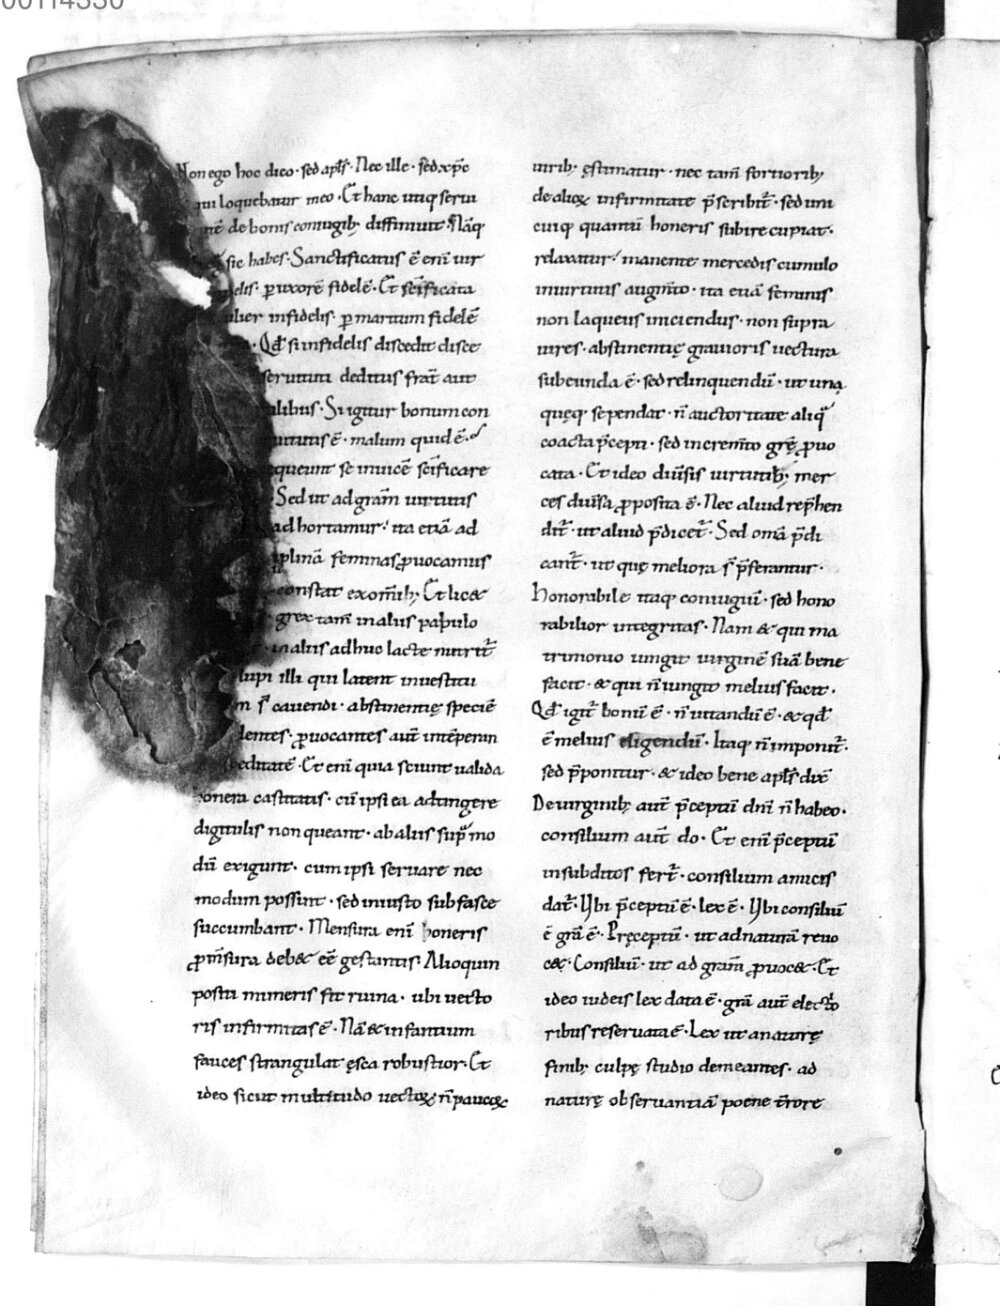 00114330
Non ego hoc dico· sed apl̅s· Nec ille· sed xp̅c
qui loquebatur meo· Et hanc utiq serui
de bonis coniugib; diffiniuit· Nāq
sic habes· Sanctificatus ē eni uir
p uxorē fidelē· Et sc̄ificata
infidelis· p maritum fidelē
Qđ si infidelis discedit disce
seruituti deditus frāt aut
Si igitur bonum con
ē· malum quid ē·
queunt se inuicē sc̄ificare
Sed ut ad grām uirtutis
adhortamur· ita etiā ad
plinā feminas ꝓuocamus
constat ex om̄ib; Et licet
grex tam̄ in aliis pabulo
in aliis adhuc lacte nutrit̄
lupi illi qui latent in uestitu
s̄ cauendi· abstinentię speciē
ꝓuocantes aut̄ intēperan
Et eni quia sciunt ualida
onera castitatis· cū ipsi ea adtingere
digitulis non queant· ab aliis sup mo
dū exigunt· cum ipsi seruare nec
modum possint· sed iniusto sub fasce
succumbant· Mensura eni honeris
ꝓ m̄sura debet eē gestantis· Alioquin
positi muneris fit ruina· ubi uecto
ris infirmitas ē· Nā & infantium
fauces strangulat ęsca robustior· Et
ideo sicut in multitudo uectoꝝ n̄ paucoꝝ
uirib; ęstimatur· nec tam̄ fortiorib;
de alioꝝ infirmitate p̄scribit̄· sed uni
cuiq quantū honeris subire cupiat·
relaxatur· manente mercedis cumulo
in uirtutis augm̄to· ita etiā feminis
non laqueus iniciendus· non supra
uires· abstinentię grauioris uectura
subeunda ē· sed relinquendū· ut una
quęq se pendat· n̄ auctoritate aliq
coacta p̄cepti· sed increm̄to grę̄ ꝓuo
cata· Et ideo diuīsis uirtutib; mer
ces diuīsa ꝓposita ē· Nec aliud rep̄hen
dit̄· ut aliud p̄dicet̄· Sed om̄a p̄di
cant̄· ut quę meliora s̄ p̄ferantur·
Honorabile itaq coniugiū· sed hono
rabilior integritas· Nam & qui ma
trimonio iungit uirginē suā bene
facit· & qui n̄ iungit melius facit·
Qđ igit̄ bonū ē· n̄ uitandū ē· & qđ
ē melius eligendū· Itaq n̄ imponit̄·
sed p̄ponitur· & ideo bene apl̅s dix̄
De uirginib; aut̄ p̄ceptū dn̄i n̄ habeo·
consilium aut̄ do· Et eni p̄ceptū
in subditos fert̄· consilium amicis
dat̄· Ubi p̄ceptū ē· lex ē· Ubi consiliū
ē grā ē· Pręceptū· ut ad naturā reuo
cet· Consiliū· ut ad grām̄ ꝓuocet· Et
ideo iudeis lex data ē· grā aut̄ electio
ribus reseruata ē· Lex ut a naturę
finib; culpę studio demeantes· ad
naturę obseruantiā poene t̄rore